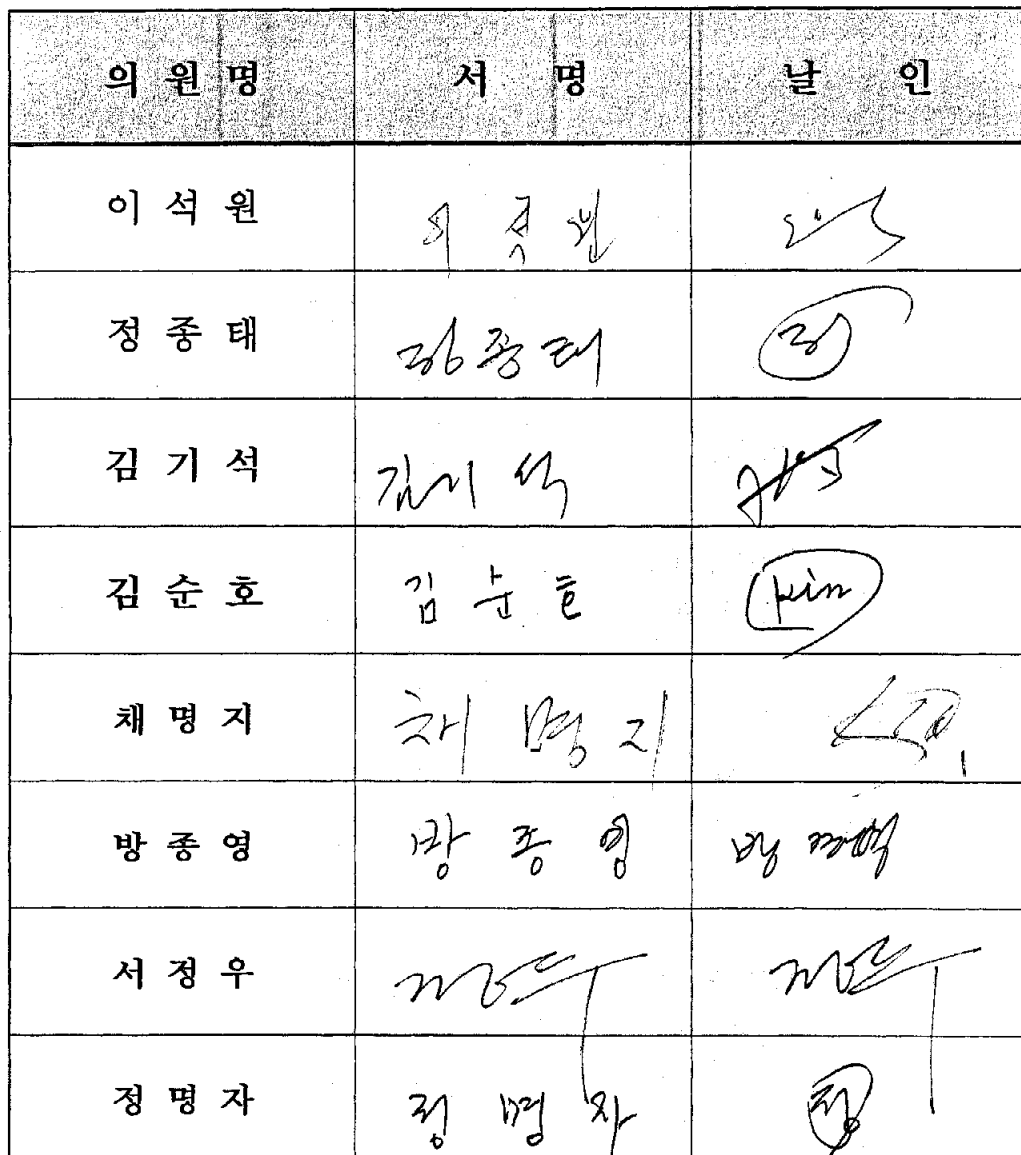 의 원 명 서 명 날 인
이 석 원 이 석 원
정 종 태 정 종 태 정
김 기 석 김 기 석
김 순 호 김 순 호 kim
채 명 지 채 명 지
방 종 영 방 종 영
서 정 우
정 명 자 정 명 자 정